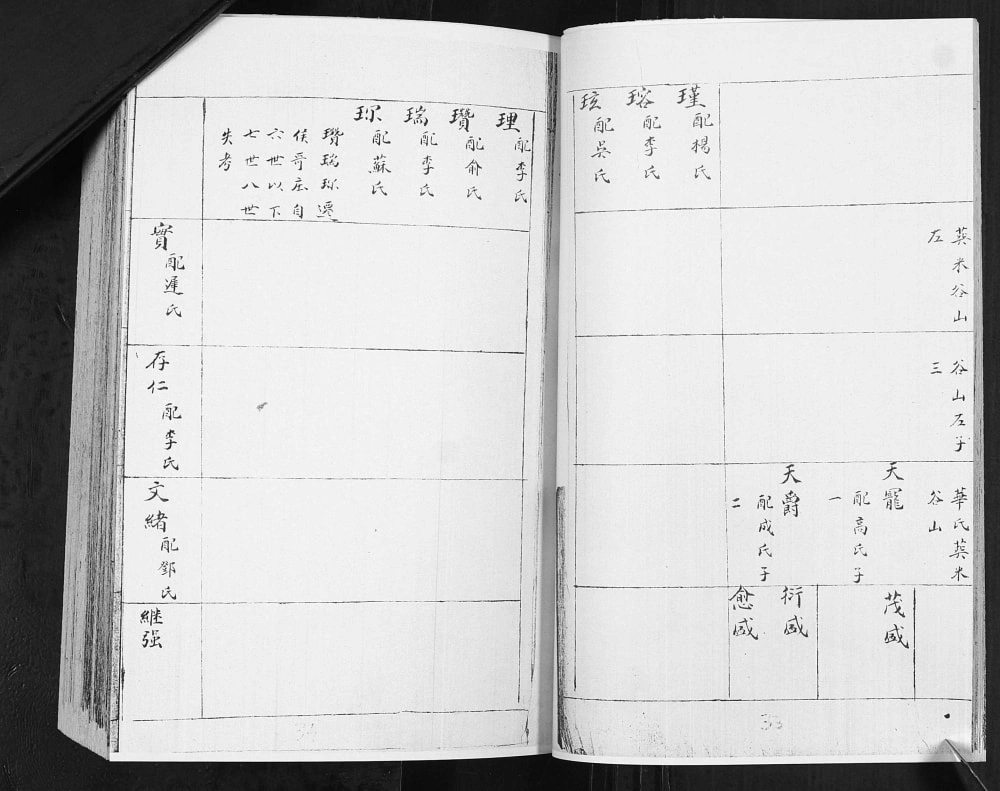 葬米谷山
左
谷山左子
三
華氏葬米
谷山
天寵
配高氏子
一
天爵
配成氏子
二
茂盛
衍盛
愈盛
瑾配楊氏
瑢配李氏
玹配吳氏
33
理配李氏
瓚配俞氏
瑞配李氏
珎配蘇氏
瓚瑞珎遷
侯哥庄自
六世以下
七世八世
失考
實配遲氏
存仁配李氏
文緒配鄧氏
継强
34